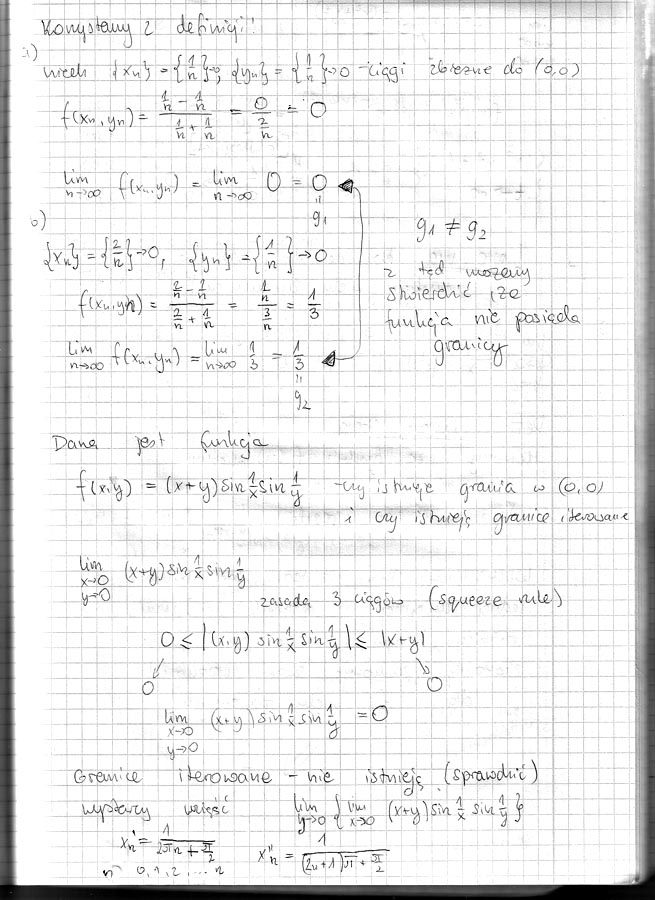 Korzystamy z definicji!
a)
niech {xₙ} = {1/n}→0, {yₙ} = {1/n}→0 - ciągi zbieżne do (0,0)
f(xₙ,yₙ) = (1/n - 1/n)/(1/n + 1/n) = 0/(2/n) = 0
lim n→∞ f(xₙ,yₙ) = lim n→∞ 0 = 0
= g₁
b)
{xₙ} = {2/n}→0, {yₙ} = {1/n}→0
f(xₙ,yₙ) = (2/n - 1/n)/(2/n + 1/n) = (1/n)/(3/n) = 1/3
lim n→∞ f(xₙ,yₙ) = lim n→∞ 1/3 = 1/3
= g₂
g₁ ≠ g₂
z tąd możemy
stwierdzić, że
funkcja nie posiada
granicy
Dana jest funkcja
f(x,y) = (x+y) sin 1/x sin 1/y - czy istnieje granica w (0,0)
i czy istnieją granice iterowane
lim x→0 y→0 (x+y) sin 1/x sin 1/y
zasada 3 ciągów (squeeze rule)
0 ≤ |(x,y) sin 1/x sin 1/y| ≤ |x+y|
0 0
lim x→0 y→0 (x+y) sin 1/x sin 1/y = 0
Granice iterowane - nie istnieją (sprawdzić)
wystarczy wziąść lim y→0 { lim x→0 (x+y) sin 1/x sin 1/y }
xₙ' = 1/(2πn + π/2) xₙ'' = 1/((2n+1)π + π/2)
n 0, 1, 2, ... n